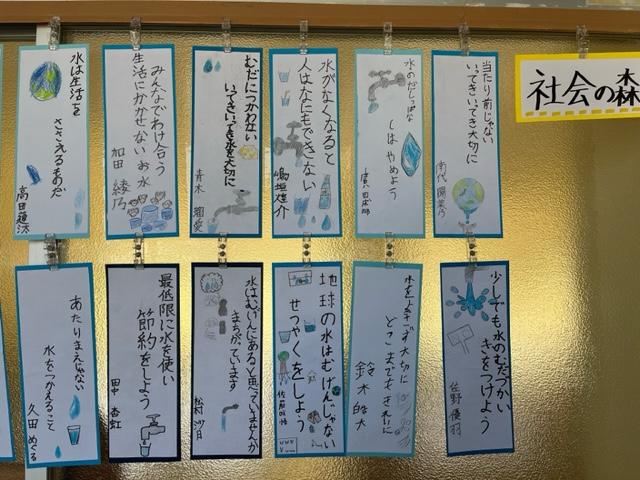 社会の森
当たり前じゃない
いってきいってき大切に
水のだしっぱな
しはやめよう
水がなくなると
人はなにもできない
むだにつかわない
いってきいってき水を大切に
青木
みんなでわけ合う
生活にかかせないお水
加田 綾乃
水は生活を
ささえるものだ
高田
少しでも水のむだづかい
きをつけよう
佐野 優羽
水をよごさず大切に
どこまでもきれいに
鈴木 皓大
地球の水はむげんじゃない
せつやくをしよう
水はむげんにあると思っていませんか
まちがっています
最低限に水を使い
節約をしよう
田中 杏虹
あたりまえじゃない
水をつかえること
久田 めぐる